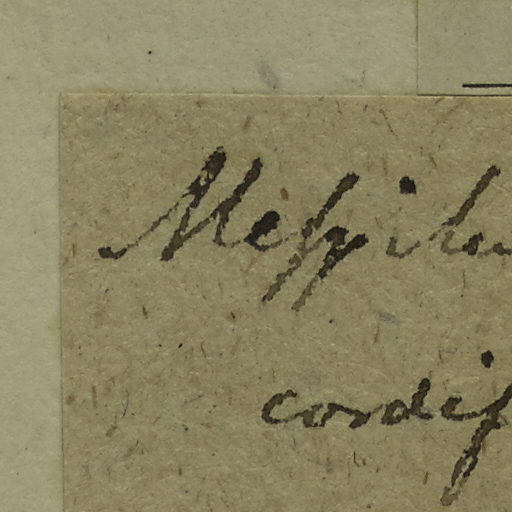 Mespilu
cordif